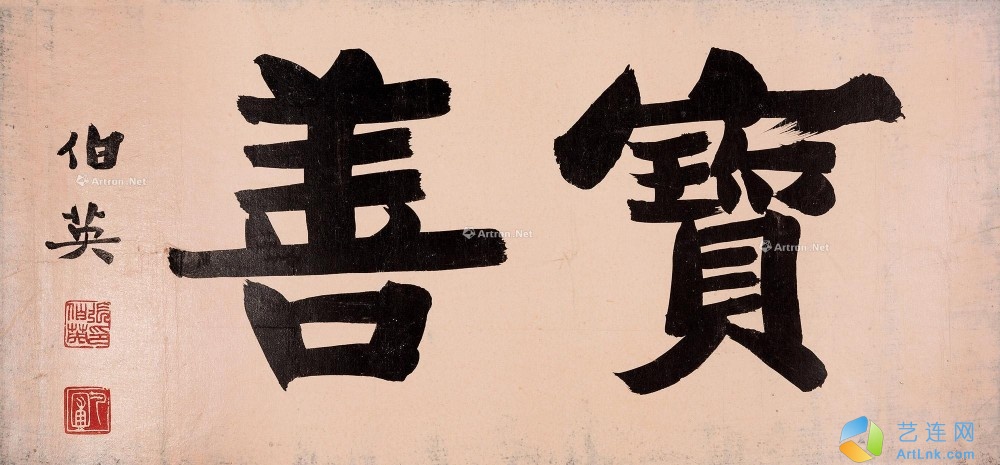 寶善
伯英
張伯英印
Artron.Net
Artron.Net
Artron.Net
艺连网
ArtLnk.com